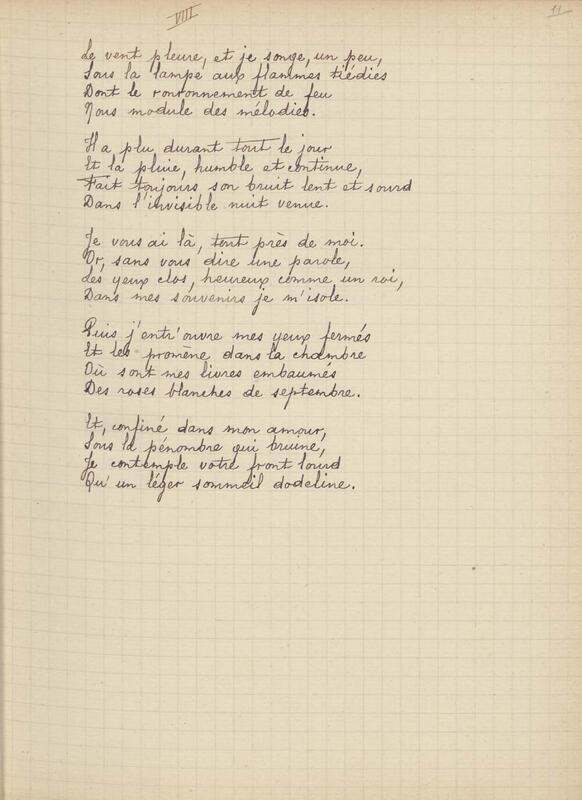 VIII
11
Le vent pleure, et je songe, un peu,
Sous la lampe aux flammes tiédies
Dont le ronronnement de feu
Nous module des mélodies.
Il a plu durant tout le jour
Et la pluie, humble et continue,
Fait toujours son bruit lent et sourd
Dans l'invisible nuit venue.
Je vous ai là, tout près de moi.
Or, sans vous dire une parole,
Les yeux clos, heureux comme un roi,
Dans mes souvenirs je m'isole.
Puis j'entr'ouvre mes yeux fermés
Et les promène dans la chambre
Où sont mes livres embaumés
Des roses blanches de septembre.
Et, confiné dans mon amour,
Sous la pénombre qui bruine,
Je contemple votre front lourd
Qu'un léger sommeil dodeline.